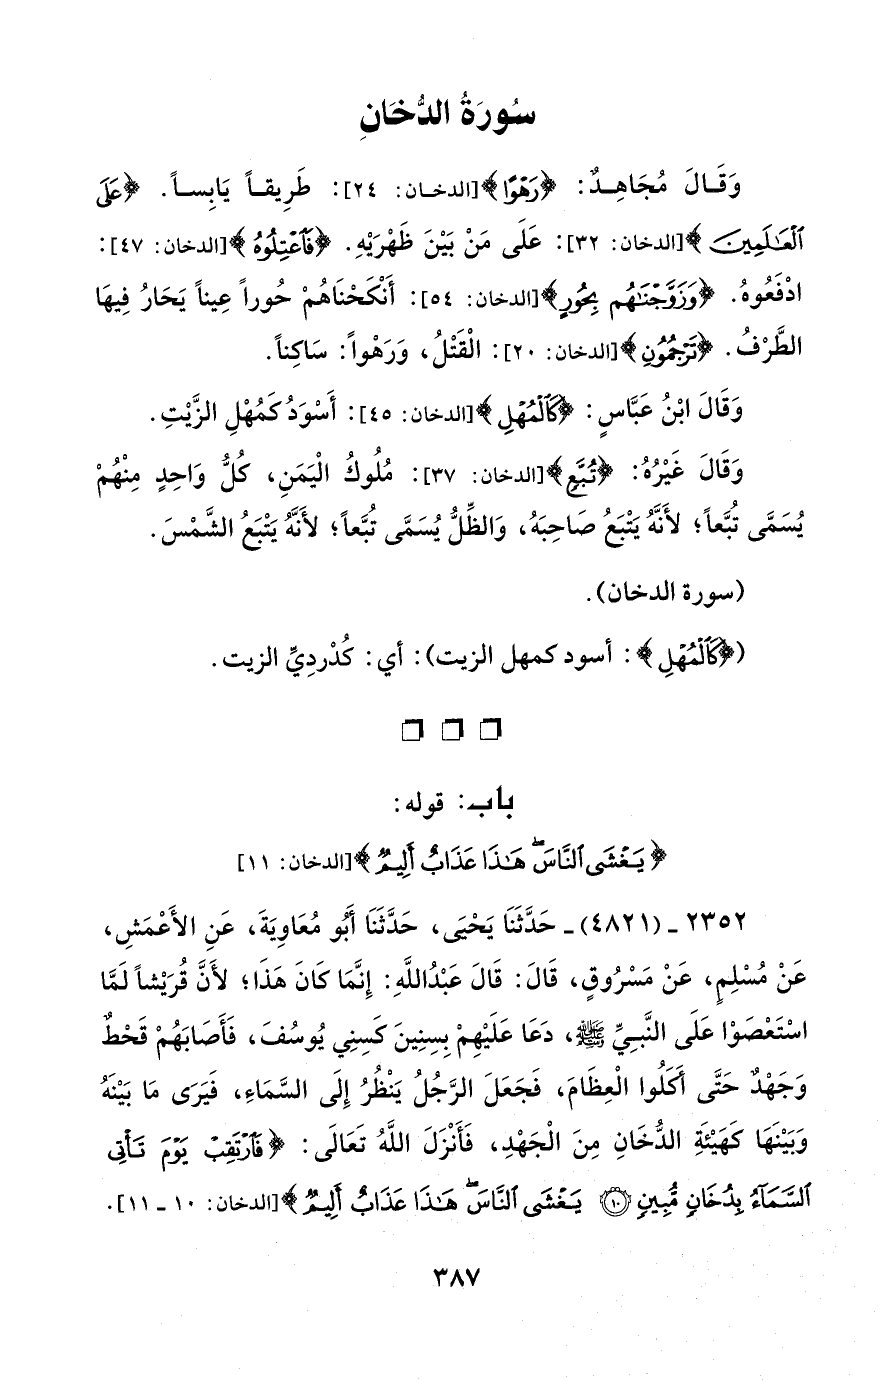 سُورَةُ الدُّخَانِ
وَقَالَ مُجَاهِدٌ: ﴿رَهْوًا﴾[الدخان: ٢٤]: طَرِيقاً يَابِساً. ﴿عَلَى
الْعَالَمِينَ﴾[الدخان: ٣٢]: عَلَى مَنْ بَيْنَ ظَهْرَيْهِ. ﴿فَاعْتِلُوهُ﴾[الدخان: ٤٧]:
ادْفَعُوهُ. ﴿وَزَوَّجْنَاهُم بِحُورٍ﴾[الدخان: ٥٤]: أَنْكَحْنَاهُمْ حُوراً عِيناً يَحَارُ فِيهَا
الطَّرْفُ. ﴿تَرْجُمُونِ﴾[الدخان: ٢٠]: الْقَتْلُ، وَرَهْواً: سَاكِناً.
وَقَالَ ابْنُ عَبَّاسٍ: ﴿كَالْمُهْلِ﴾[الدخان: ٤٥]: أَسْوَدُ كَمُهْلِ الزَّيْتِ.
وَقَالَ غَيْرُهُ: ﴿تُبَّعٍ﴾[الدخان: ٣٧]: مُلُوكُ الْيَمَنِ، كُلُّ وَاحِدٍ مِنْهُمْ
يُسَمَّى تُبَّعاً؛ لأَنَّهُ يَتْبَعُ صَاحِبَهُ، وَالظِّلُّ يُسَمَّى تُبَّعاً؛ لأَنَّهُ يَتْبَعُ الشَّمْسَ.
(سورة الدخان).
(﴿كَالْمُهْلِ﴾: أسود كمهل الزيت): أي: كَدُرْدِيِّ الزيت.
باب: قوله:
﴿يَغْشَى النَّاسَ ۖ هَٰذَا عَذَابٌ أَلِيمٌ﴾[الدخان: ١١]
٢٣٥٢ ـ (٤٨٢١) ـ حَدَّثَنَا يَحْيَى، حَدَّثَنَا أَبُو مُعَاوِيَةَ، عَنِ الأَعْمَشِ،
عَنْ مُسْلِمٍ، عَنْ مَسْرُوقٍ، قَالَ: قَالَ عَبْدُاللَّهِ: إِنَّمَا كَانَ هَذَا؛ لأَنَّ قُرَيْشاً لَمَّا
اسْتَعْصَوْا عَلَى النَّبِيِّ ﷺ، دَعَا عَلَيْهِمْ بِسِنِينَ كَسِنِي يُوسُفَ، فَأَصَابَهُمْ قَحْطٌ
وَجَهْدٌ حَتَّى أَكَلُوا الْعِظَامَ، فَجَعَلَ الرَّجُلُ يَنْظُرُ إِلَى السَّمَاءِ، فَيَرَى مَا بَيْنَهُ
وَبَيْنَهَا كَهَيْئَةِ الدُّخَانِ مِنَ الْجَهْدِ، فَأَنْزَلَ اللَّهُ تَعَالَى: ﴿فَارْتَقِبْ يَوْمَ تَأْتِي
السَّمَاءُ بِدُخَانٍ مُّبِينٍ ۝١٠ يَغْشَى النَّاسَ ۖ هَٰذَا عَذَابٌ أَلِيمٌ﴾[الدخان: ١٠ ـ ١١].
٣٨٧